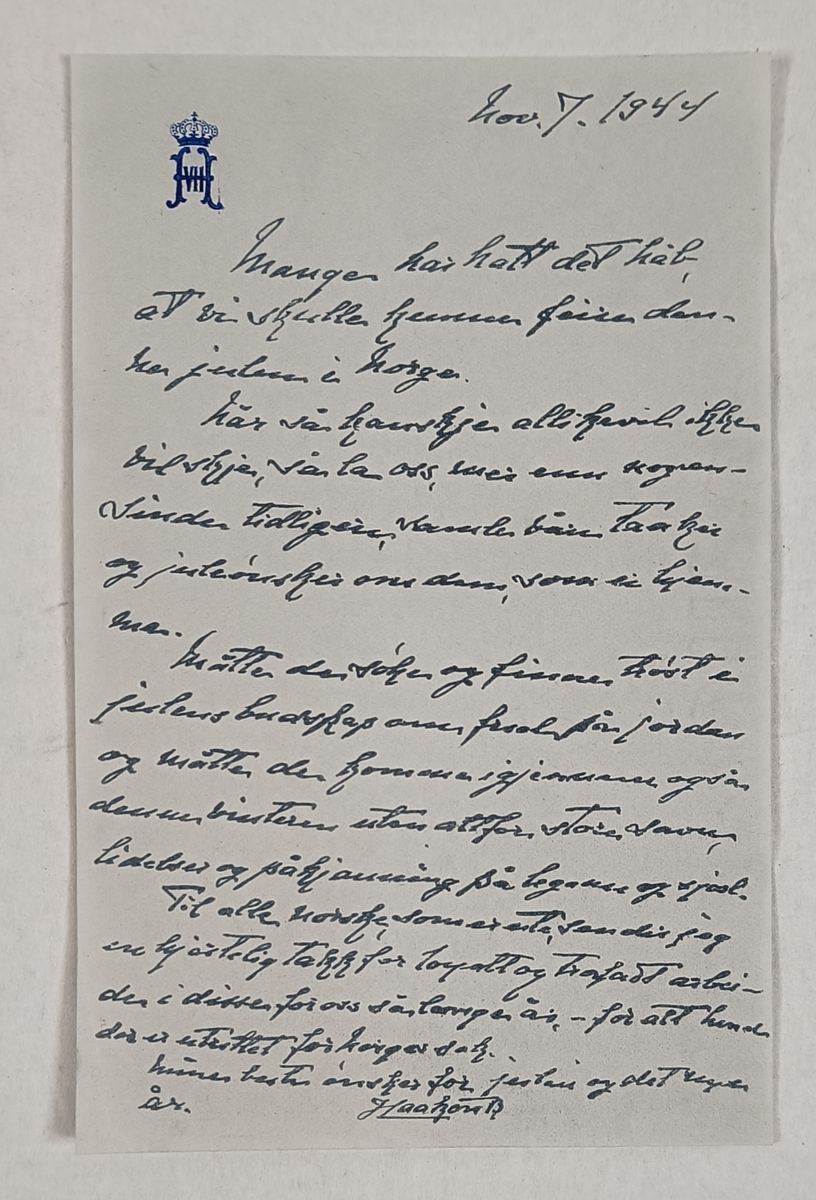 Nov. 7. 1944
H VII
Mange har hatt det håb,
at vi skulle kunne feire den-
ne julen i Norge.
Når så kanskje allikevel ikke
vil skje, så la oss, mer enn nogen-
sinde tidligere, samle våre tanker
og juleønsker om dem, som er hjem-
me.
Måtte de søke og finne trøst i
julens budskap om fred på jorden
og måtte de komme igjennem også
denne vinteren uten altfor store savn,
lidelser og påkjenning på legeme og sjæl.
Til alle norske, som er ute, sender jeg
en hjertelig takk for loyalt og trofast arbei-
de i disse for oss så lange år, – for alt hvad
der er utrettet for Norges sak.
Mine beste ønsker for julen og det nye
år.
Haakon R